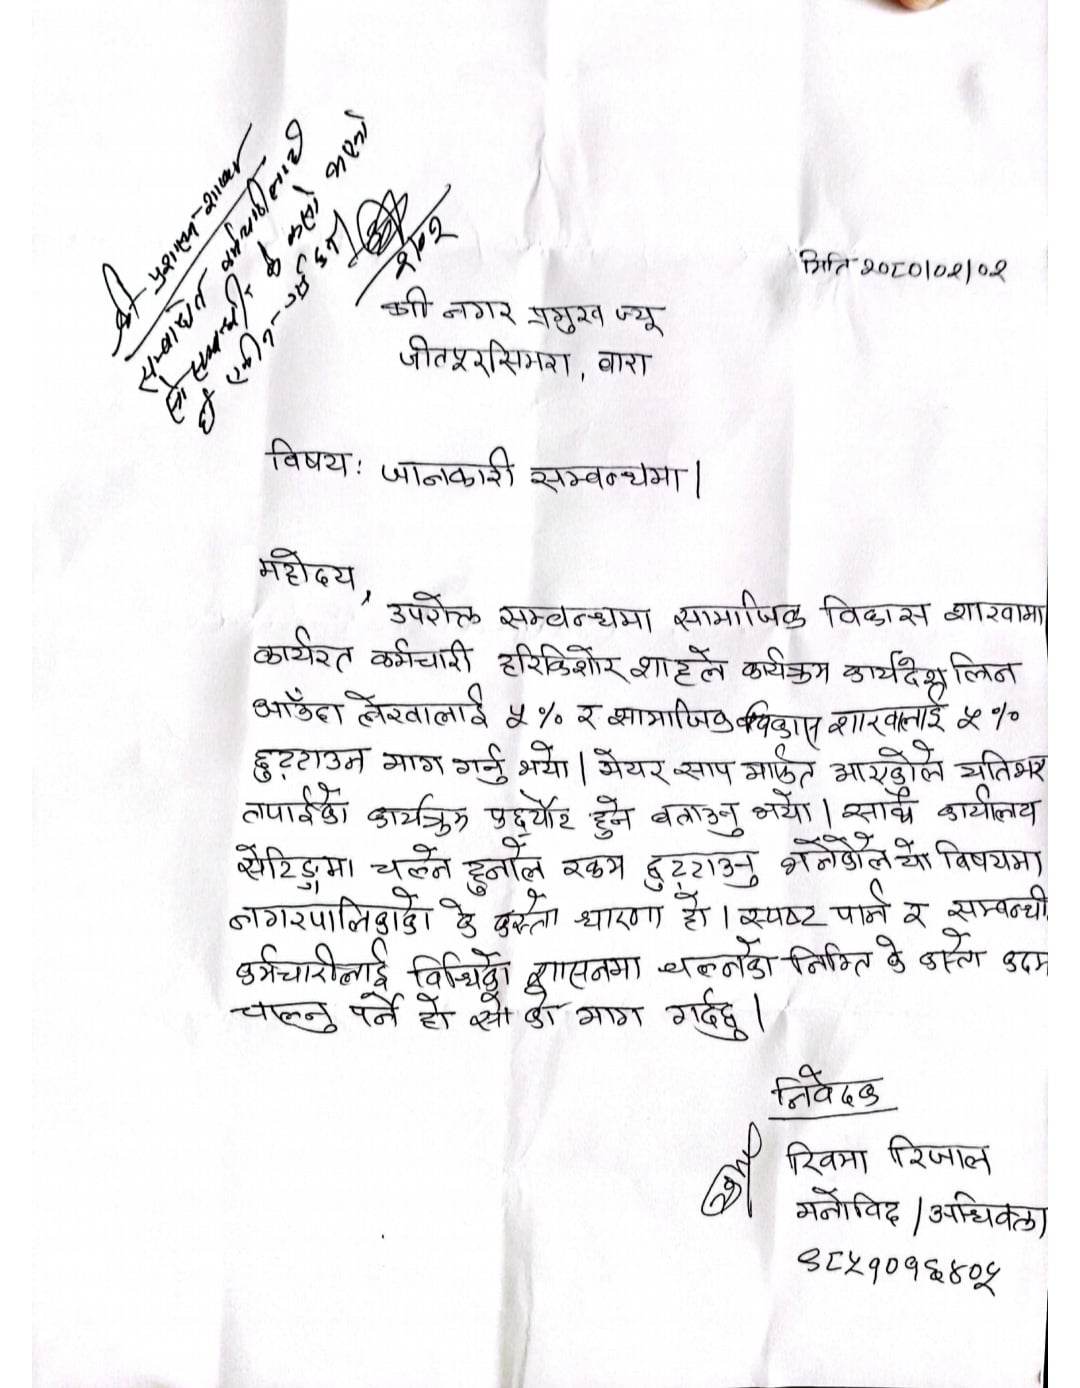 श्री प्रशासन शाखा
सम्बन्धित कर्मचारीलाई
सो सम्बन्धी के कसो भएको
हो
२/०२
मिति २०८०/०२/०२
श्री नगर प्रमुख ज्यू
जीतपुरसिमरा, बारा
विषय: जानकारी सम्बन्धमा।
महोदय,
उपरोक्त सम्बन्धमा सामाजिक विकास शाखामा
कार्यरत कर्मचारी हरिकिशोर शाहले कार्यक्रम कार्यदेश लिन
आउँदा लेखालाई ५% र सामाजिक विकास शाखलाई ५%
छुट्टाउन माग गर्नु भयो। मेयर साप मार्फत आएकोले यतिभर
तपाईको कार्यक्रम हुने बताउनु भयो। साथै कार्यालय
सेटिङमा चल्ने हुनाले रकम छुट्टाउनु भनेकोले यो विषयमा
नगरपालिकाको के कस्तो धारणा हो। स्पष्ट पार्न र सम्बन्धी
कर्मचारीलाई विधिको शासनमा चल्नको निम्ति के कस्तो कदम
चाल्नु पर्ने हो सो को माग गर्दछु।
निवेदक
रिजाल
मनोविद/अधिवक्ता
९८५१०१६४०५